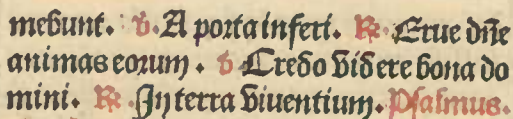 mebunt. ℣. A porta inferi. ℟. Erue dñe
animas eorum. ℣ Credo videre bona do
mini. ℟. In terra viuentium. Psalmus.